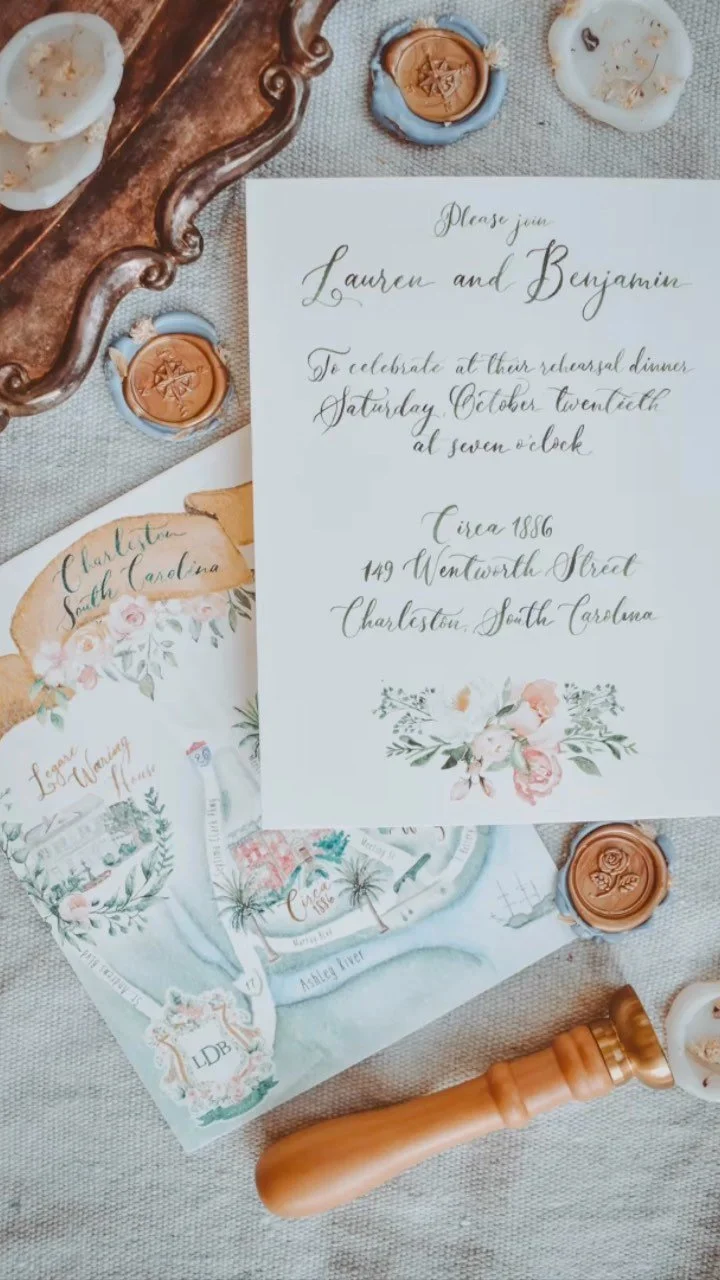 Please join
Lauren and Benjamin
To celebrate at their rehearsal dinner
Saturday, October twentieth
at seven o'clock
Circa 1886
149 Wentworth Street
Charleston, South Carolina
Charleston
South Carolina
Legare
Waring
House
Meeting St
Circa
1886
Ashley River
St. Andrews Blvd
17
LDB